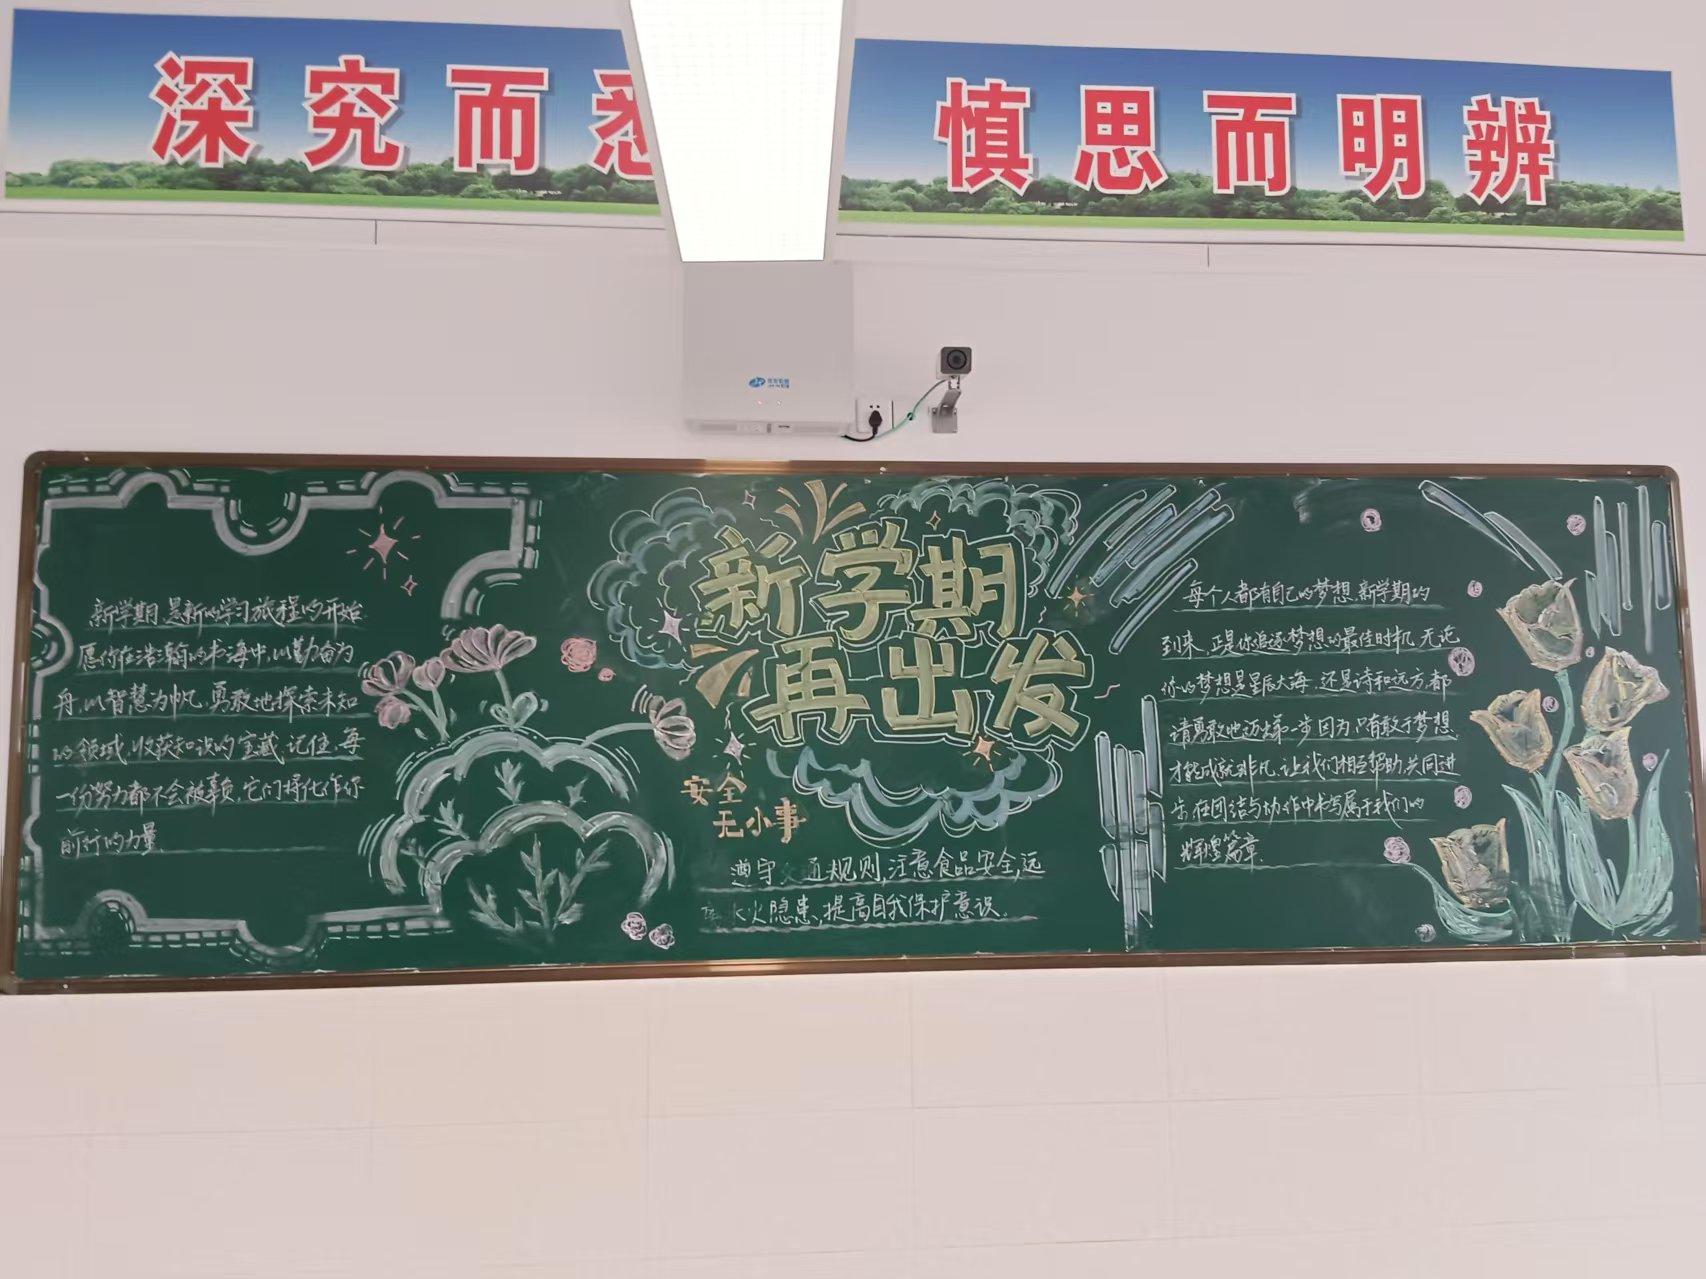 深究而悉
慎思而明辨
新学期,是新的学习旅程的开始
愿你在浩瀚的书海中,以勤奋为
舟,以智慧为帆,勇敢地探索未知
的领域,收获知识的宝藏,记住,每
一份努力都不会被辜负,它们将化作你
前行的力量
新学期
再出发
安全
无小事
遵守交通规则,注意食品安全,远
离水火隐患,提高自我保护意识。
每个人都有自己的梦想,新学期的
到来,正是你追逐梦想的最佳时机,无论
你的梦想是星辰大海,还是诗和远方,都
请勇敢地迈出第一步,因为,只有敢于梦想,
才能成就非凡,让我们相互帮助,共同进
步,在团结与协作中书写属于我们的
辉煌篇章.